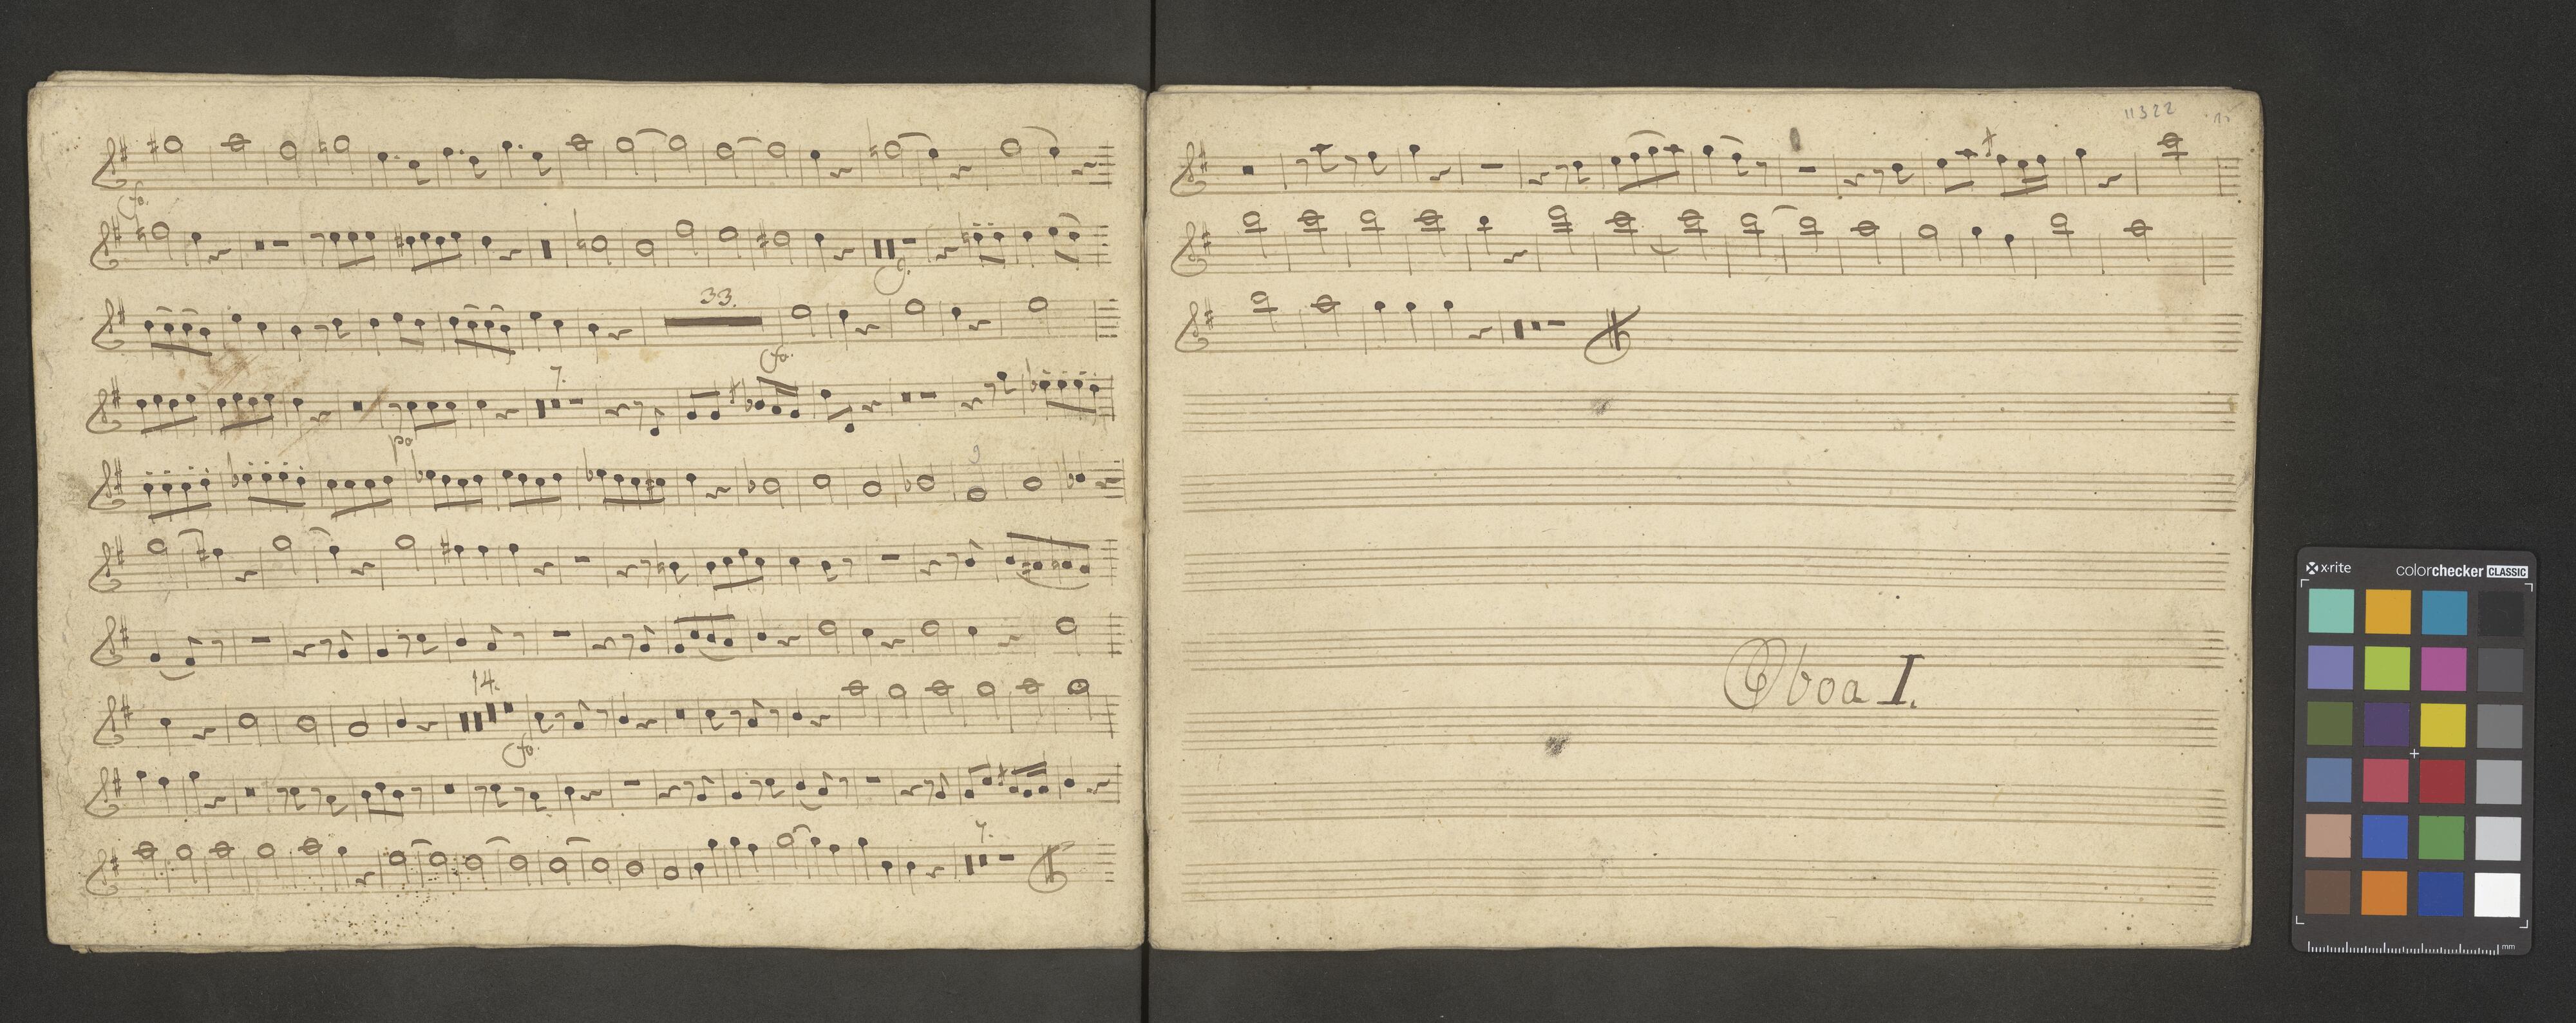 fo.
33.
fo.
7.
po
14.
fo.
7.
11322
Oboa I.
x-rite
colorchecker CLASSIC
mm